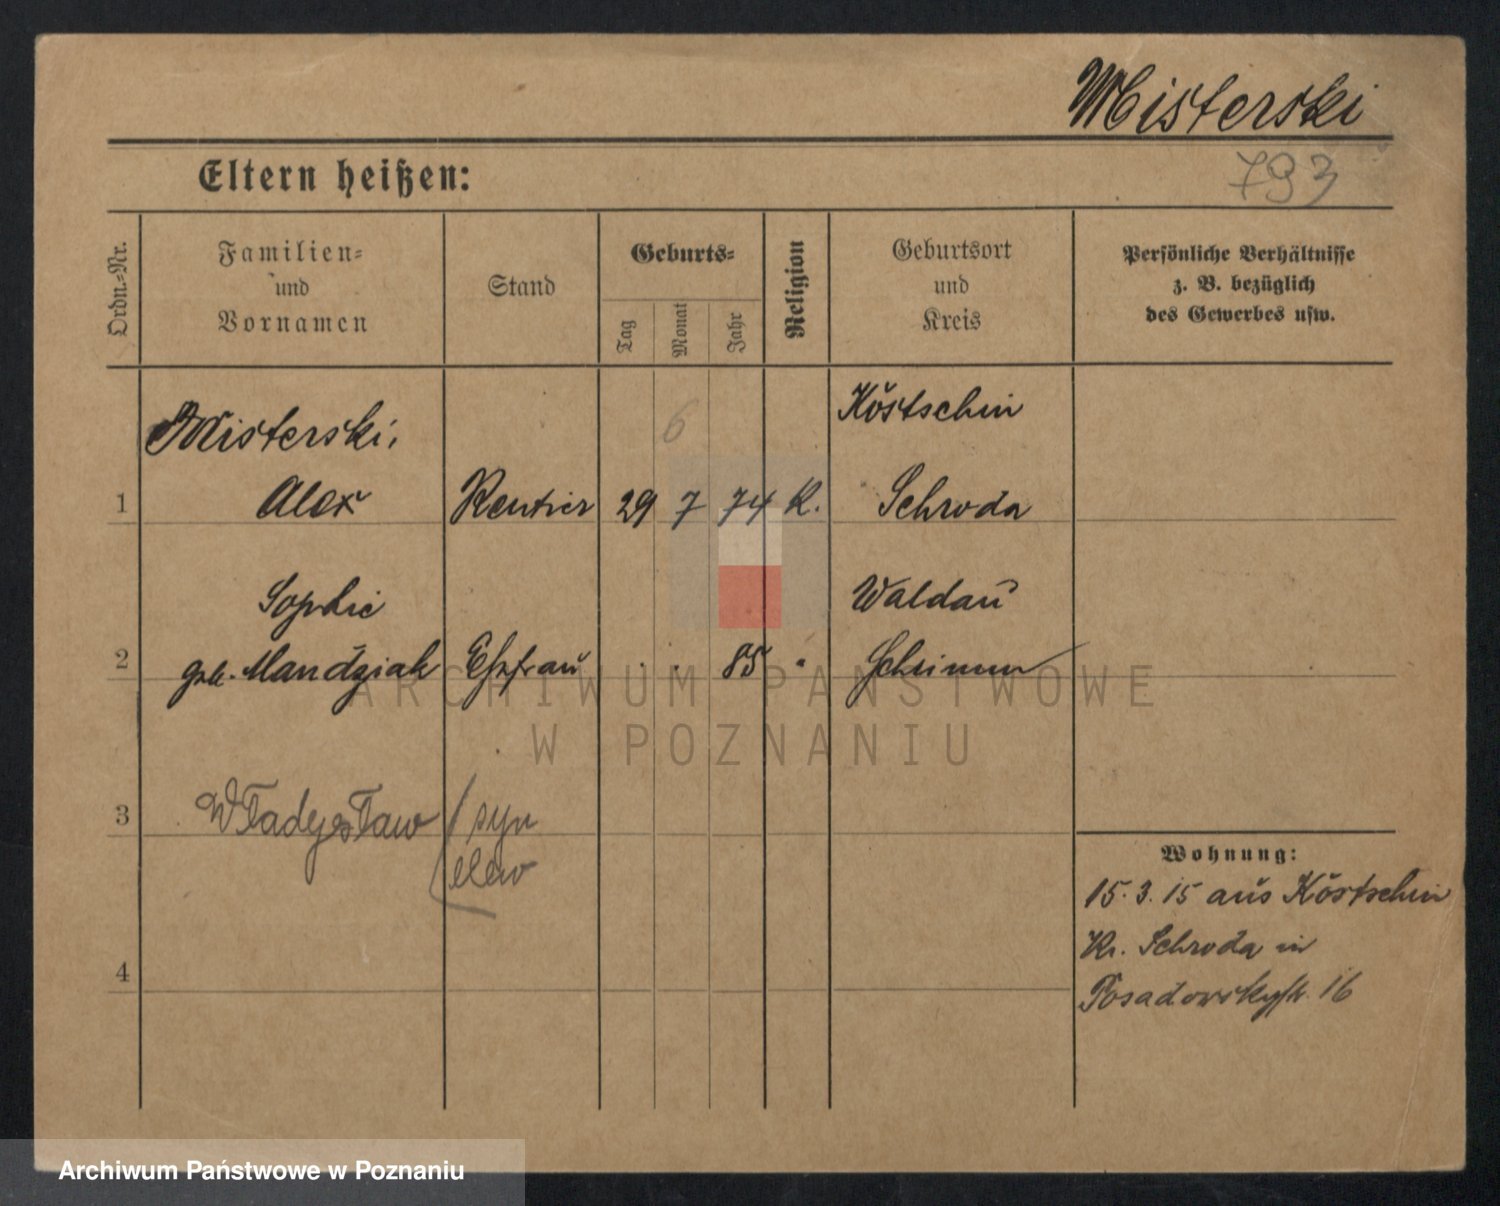 Misterski
793
Eltern heißen:
Ordn.-Nr.
Familien-
und
Vornamen
Stand
Geburts-
Tag
Monat
Jahr
Religion
Geburtsort
und
Kreis
Persönliche Verhältnisse
z. B. bezüglich
des Gewerbes usw.
6
Köstschin
Misterski,
1 Alex Rentier 29 7 74 K. Schroda
Sophie Waldau
2 geb. Mandziak Ehefrau . . 85 "
3 Władysław syn
Wohnung:
15. 3. 15 aus Köstschin
Kr. Schroda in
Posadowskystr. 16
4
ARCHIWUM PAŃSTWOWE
W POZNANIU
Archiwum Państwowe w Poznaniu